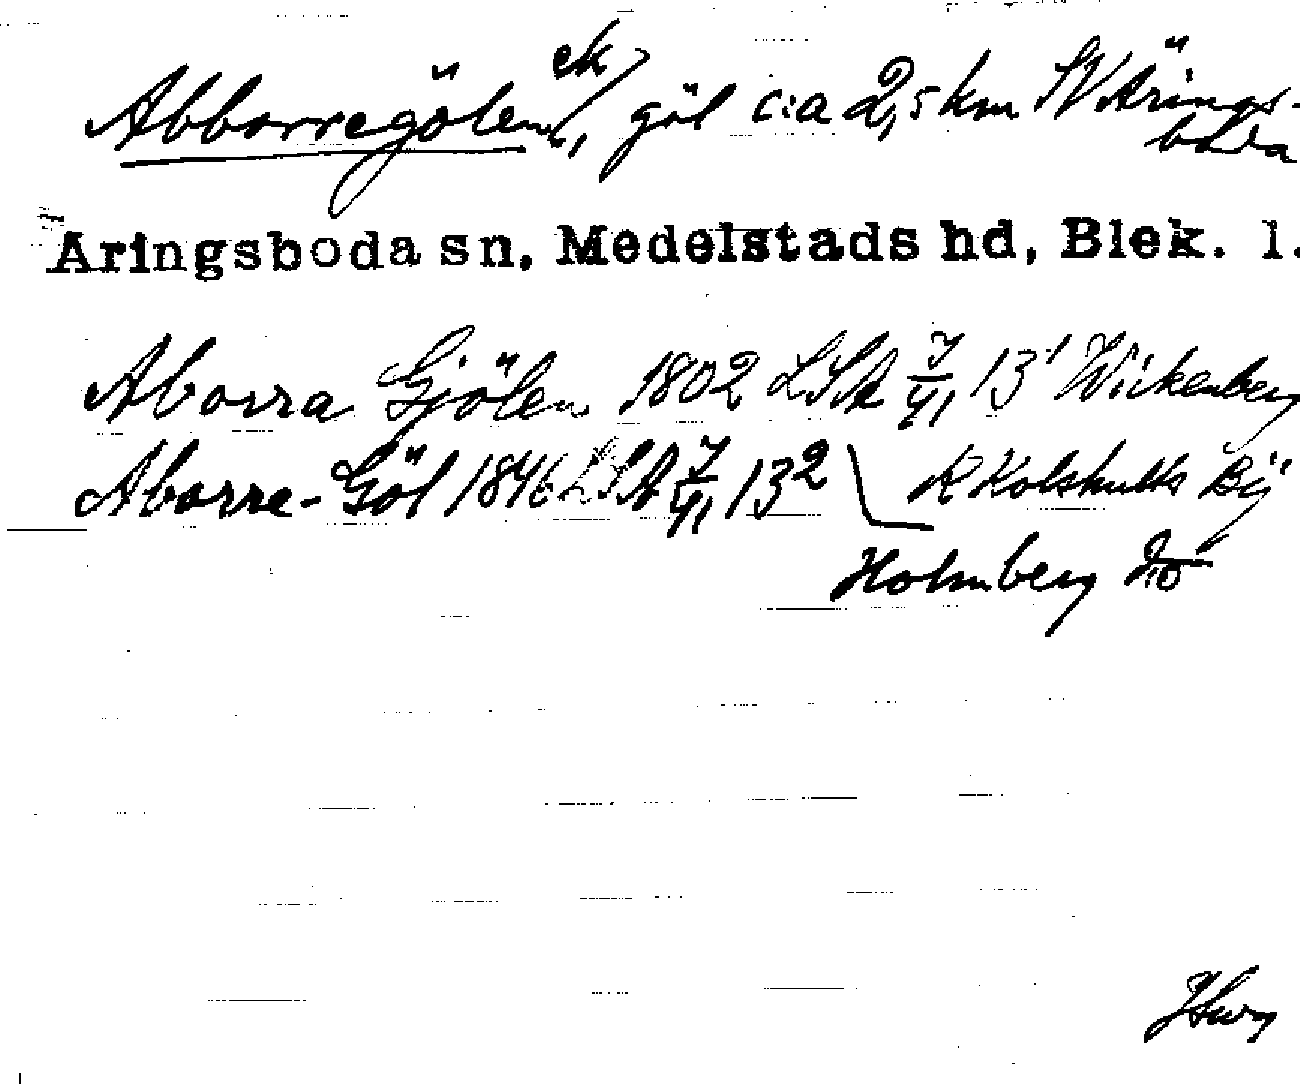 Abborregölen ek, göl c:a 2,5 km SV Ärings-
boda
Äringsboda sn, Medelstads hd, Blek. l.
Aborra Gjölen 1802 LSA 7/41 13¹ Wickenberg
Aborre-Göl 1846 LSA 7/41 13² R Kolshults By
Holmberg